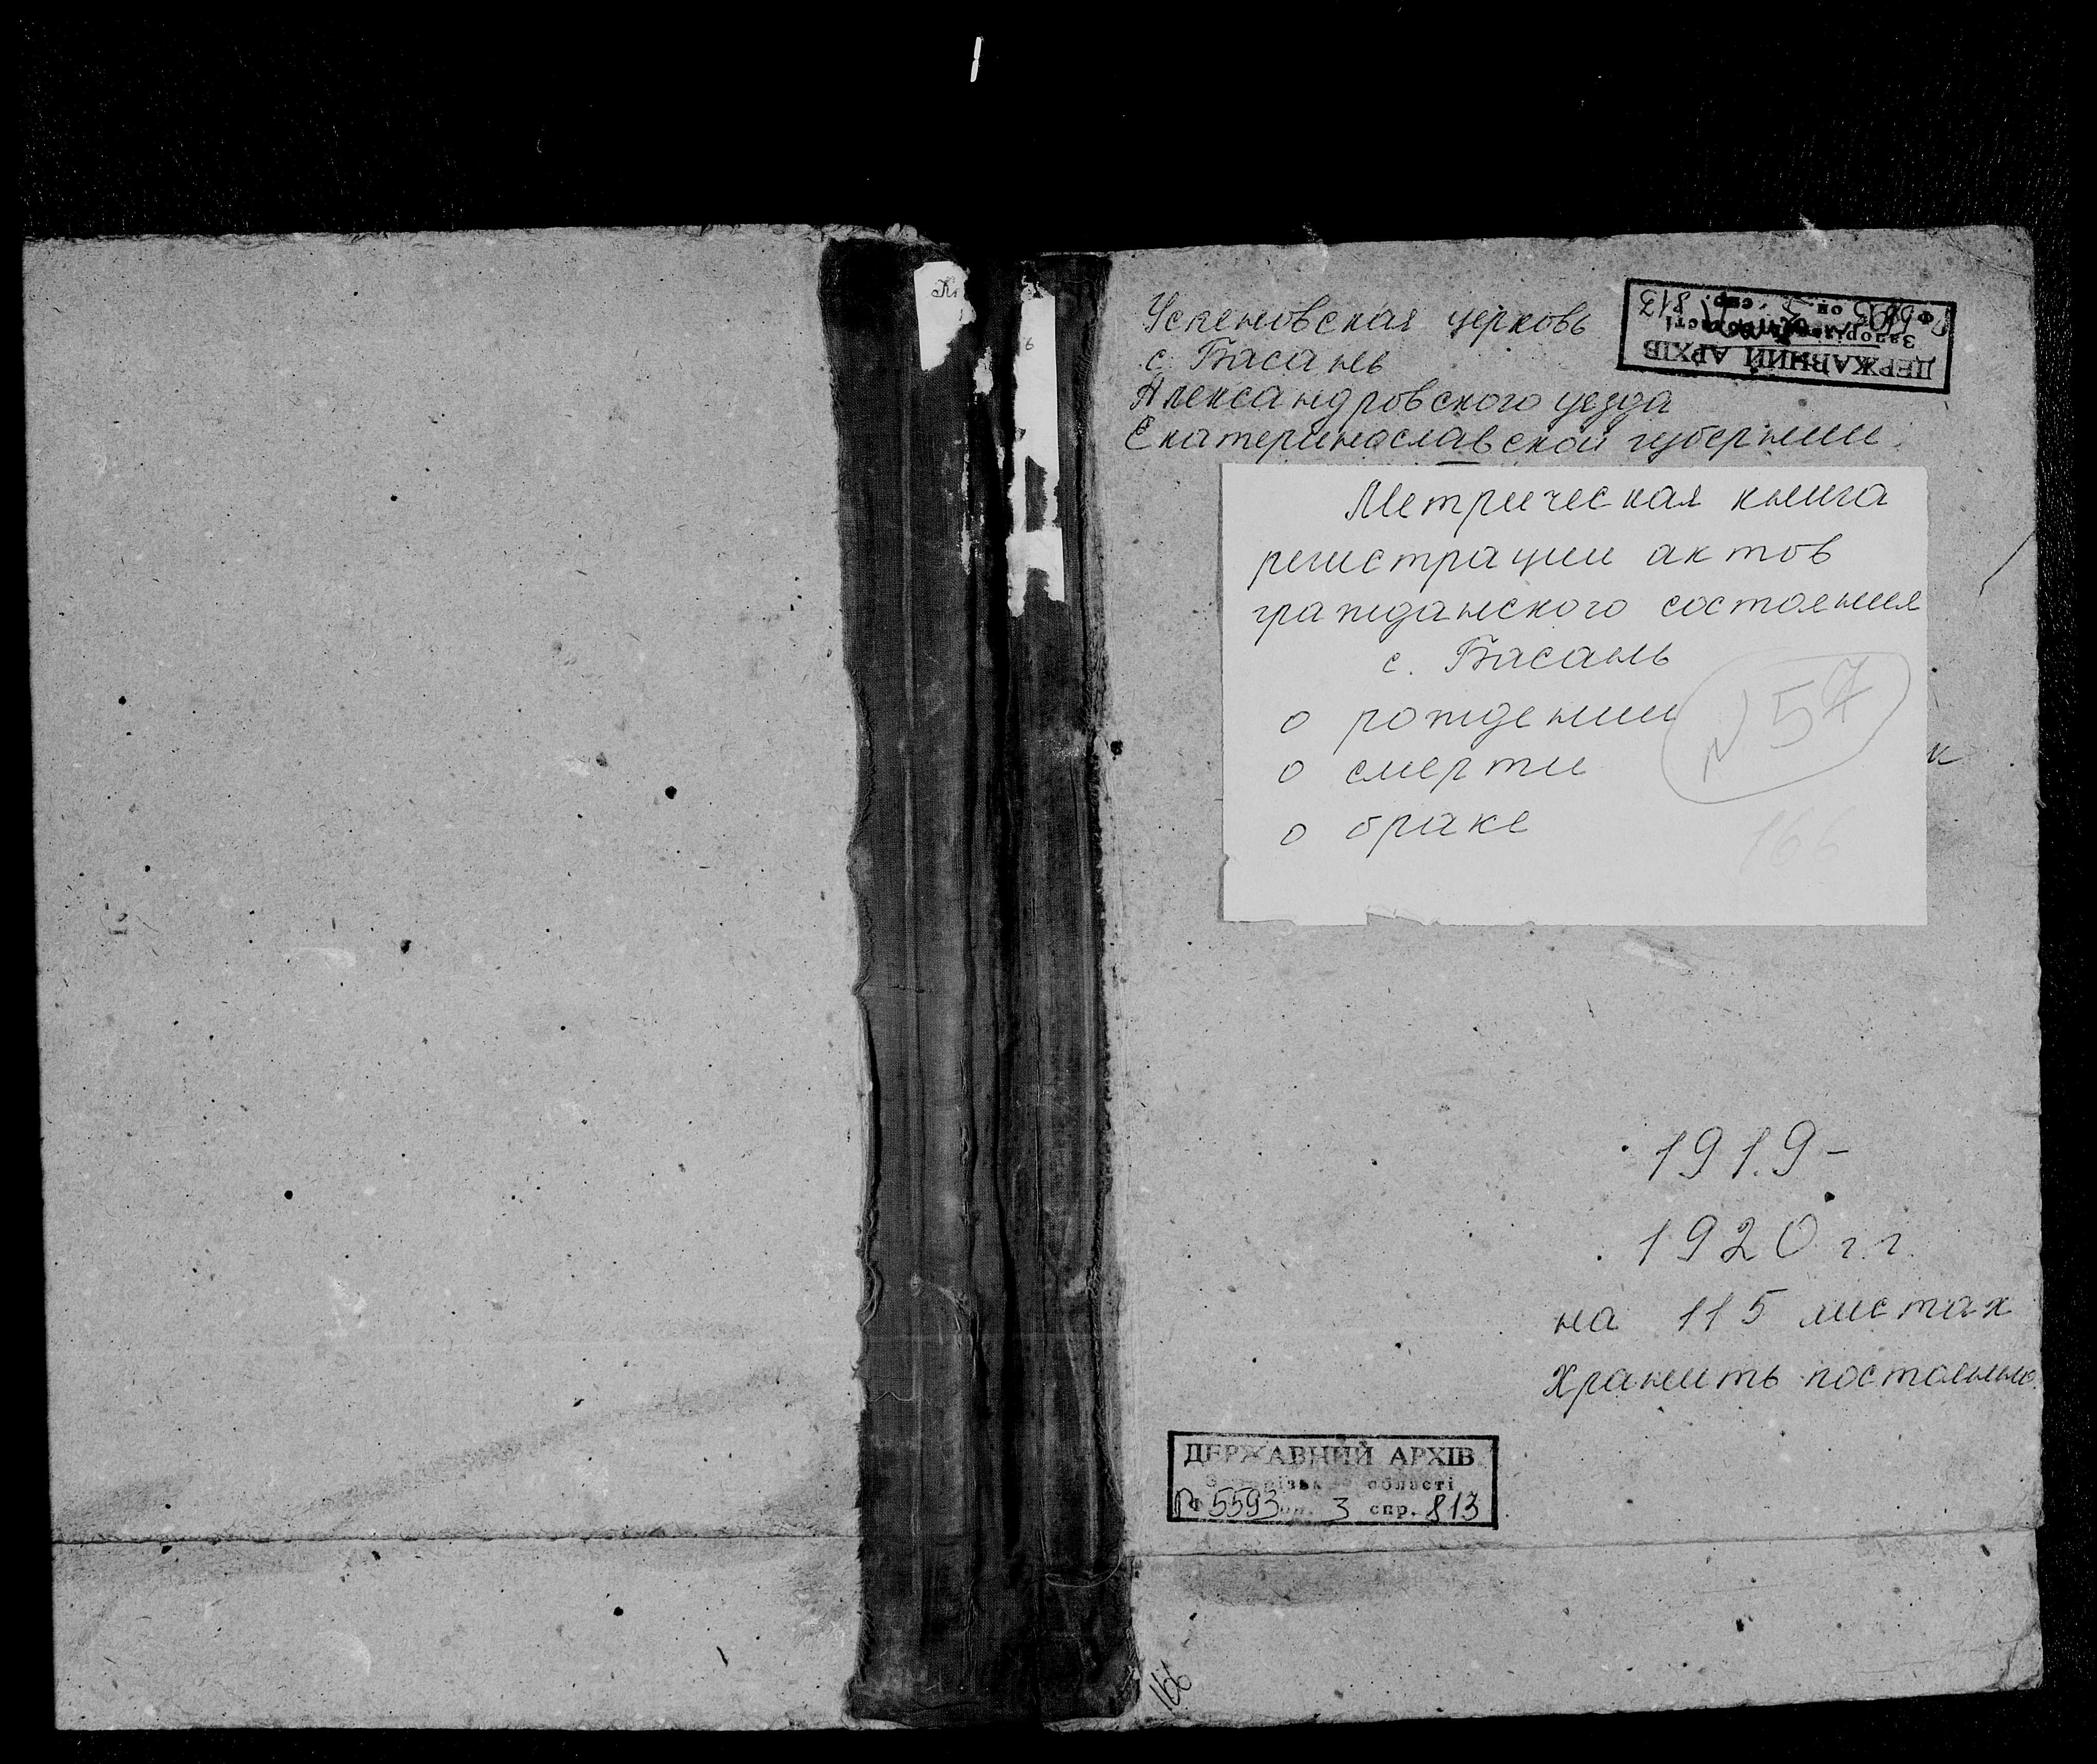 Успеновская церковь
с. Басань
Александровского уезда
Екатеринославской губернии.
ДЕРЖАВНИЙ АРХІВ
Запорізької області
ф. Р5593 оп. 3 спр. 813
Метрическая книга
регистрации актов
гражданского состояния
с. Басань
о рождении
о смерти
о браке
N 57
166
к
1919-
1920 г.г.
на 115 листах
Хранить постоянно.
ДЕРЖАВНИЙ АРХІВ
Запорізької області
ф. Р5593 оп. 3 спр. 813
166